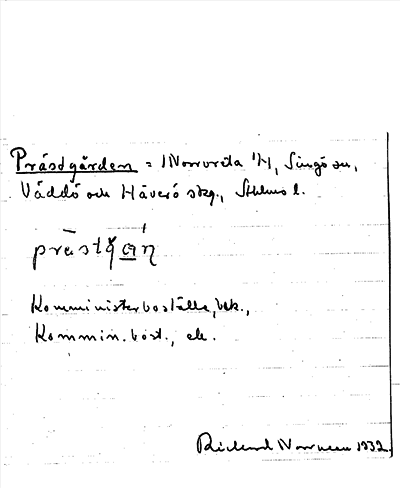 Prästgården = Norrvreta 1/4, Singö sn,
Väddö och Häverö skg., Sthlms l.
prästg̊án
Komministerboställe, bek.,
Kommin. bost., ek.
Rickard 1932.